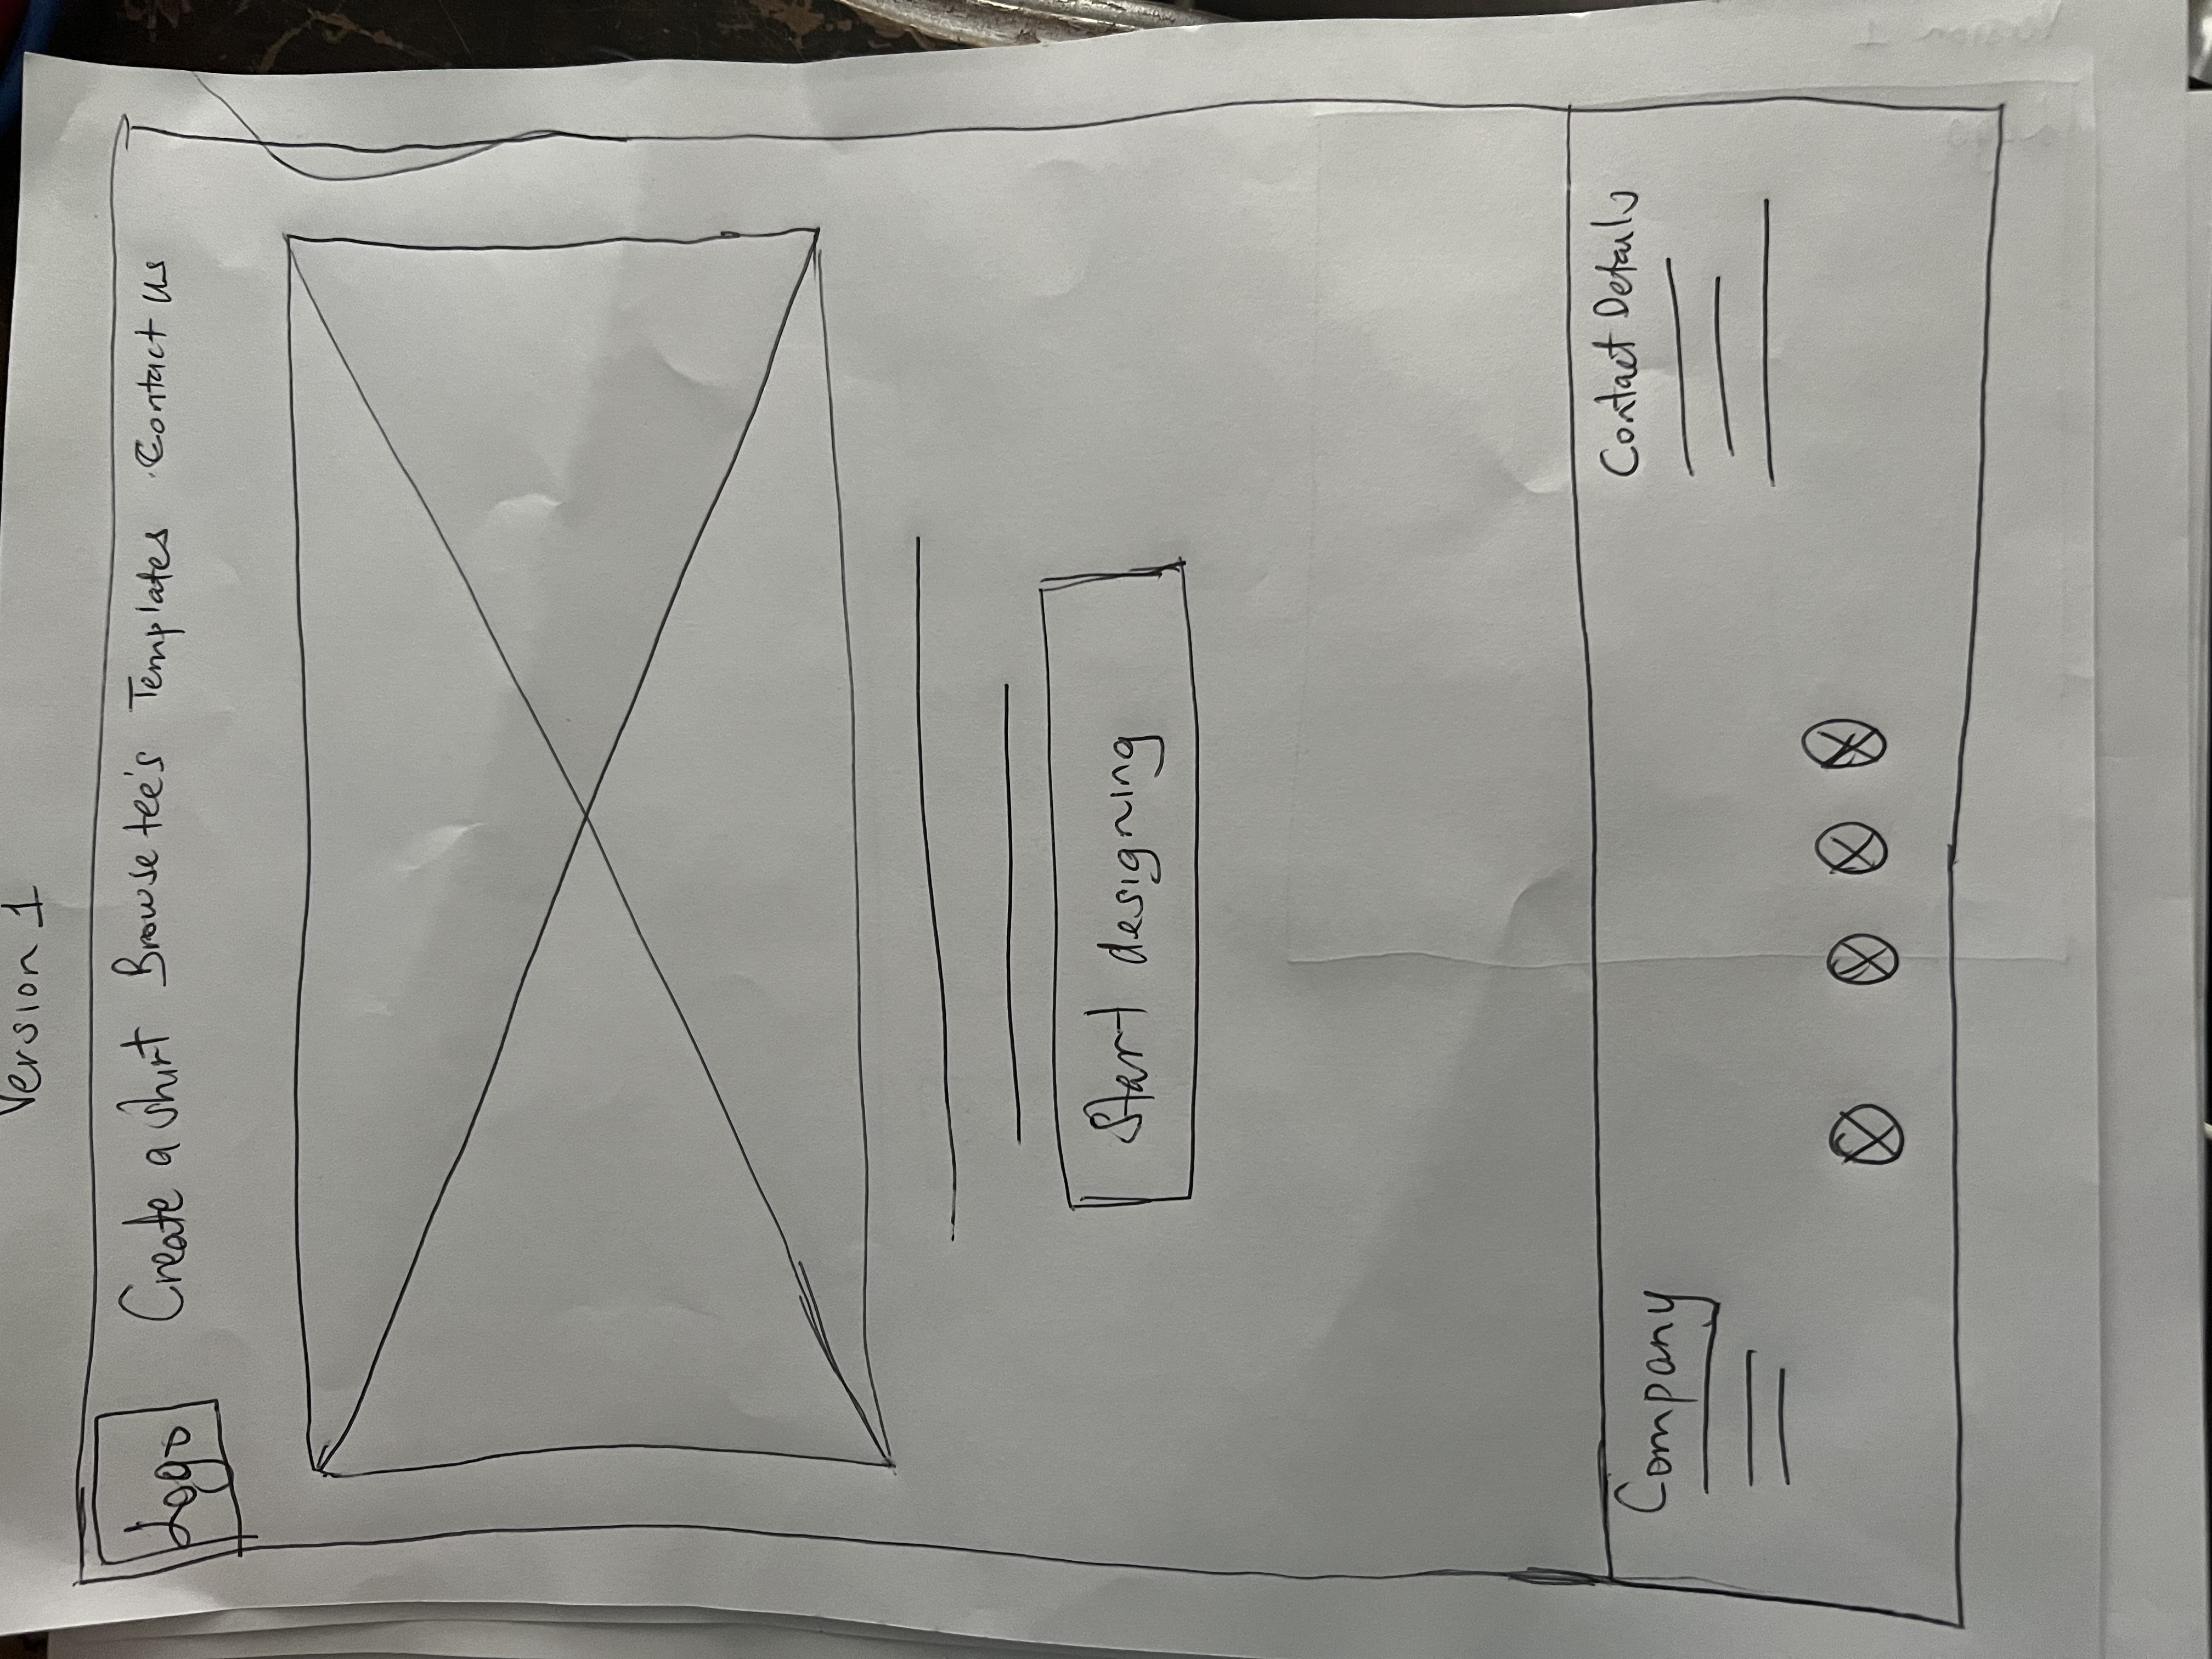 Version 1
Logo
Create a shirt Browse tee's Templates Contact Us
Start designing
Company
Contact Details